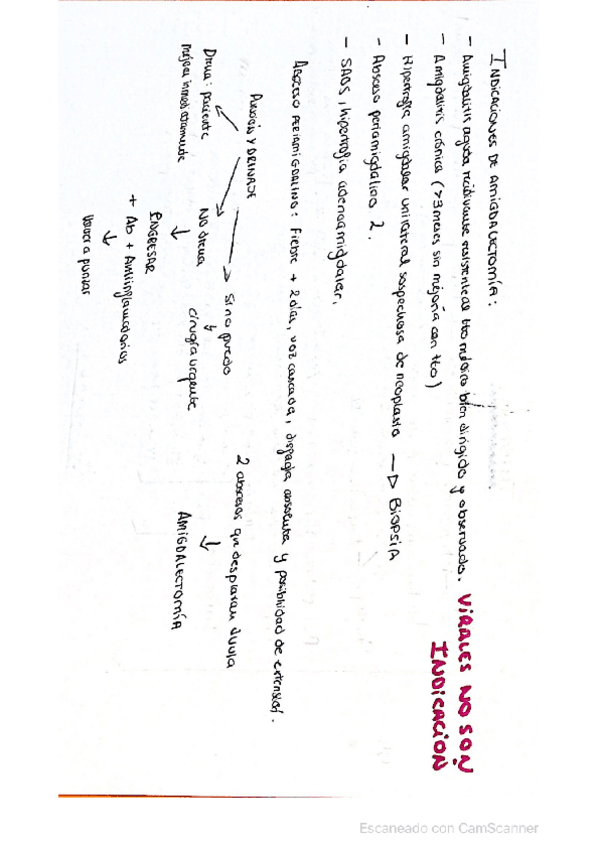 INDICACIONES DE AMIGDALECTOMÍA:
- Amigdalitis aguda recidivante resistente al tto médico bien dirigido y observado. VIRALES NO SON INDICACIÓN
- Amigdalitis crónica (>3 meses sin mejoría con tto)
- Hipertrofia amigdalar unilateral sospechosa de neoplasia → BIOPSIA
- Absceso periamigdalino 2.
- SAOS, hipertrofia adenoamigdalar.
ABSCESO PERIAMIGDALINO: Fiebre + 2 días, voz cascada, disfagia absoluta y posibilidad de extensión.
PUNCIÓN Y DRENAJE
Drena: paciente
mejora inmediatamente
No drena
↓
INGRESAR
+ Ab + Antiinflamatorios
↓
volver a punzar
Si no puedo
↓
cirugía urgente
2 abscesos que desplazan úvula
↓
AMIGDALECTOMÍA
Escaneado con CamScanner